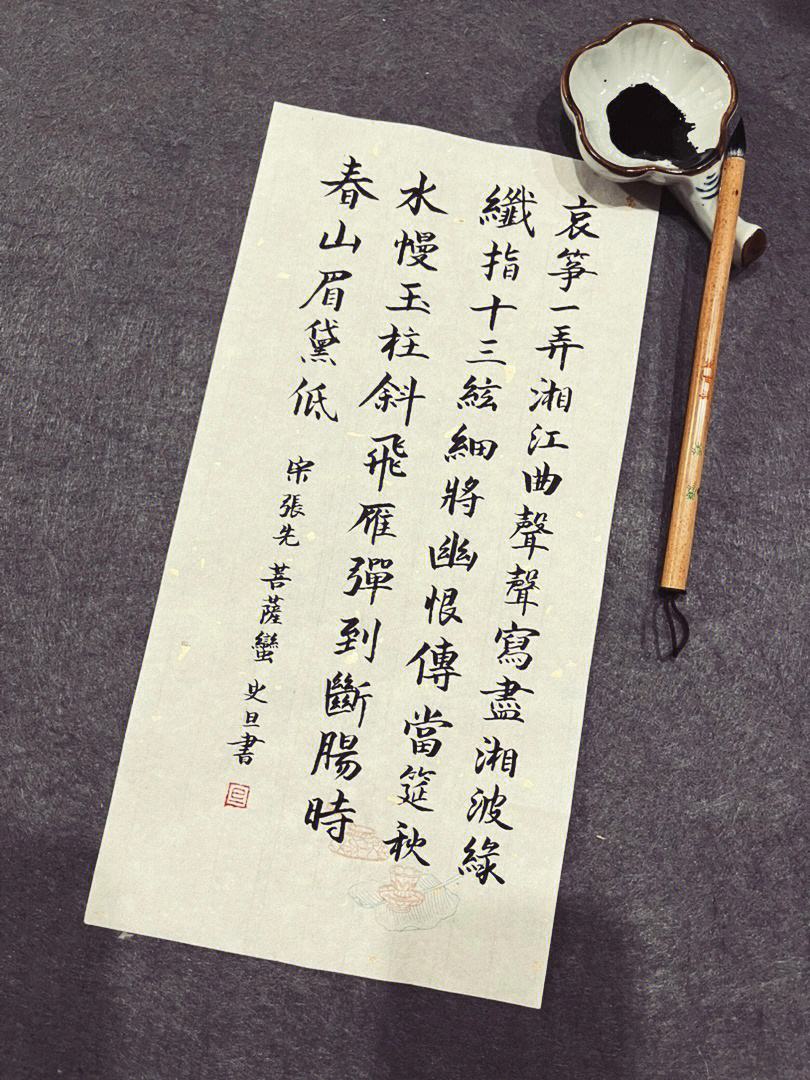 哀箏一弄湘江曲聲聲寫盡湘波綠
纖指十三絃細將幽恨傳當筵秋
水慢玉柱斜飛雁彈到斷腸時
春山眉黛低
宋張先 菩薩蠻 史旦書